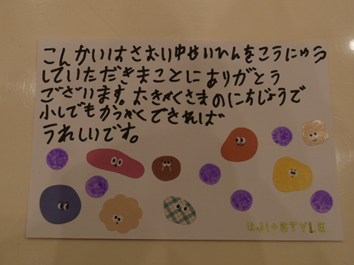 こんかいはさおり中せいひんをこうにゅう
していただきまことにありがとう
ございます。大きゃくさまの
小しでもかつやくできれば
うれしいです。